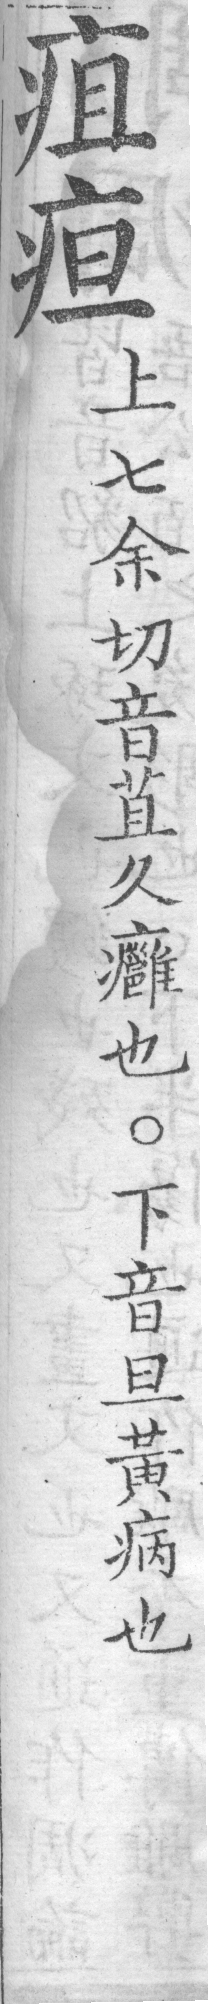 疽疸
上七余切音苴久癰也○下音旦黃病也